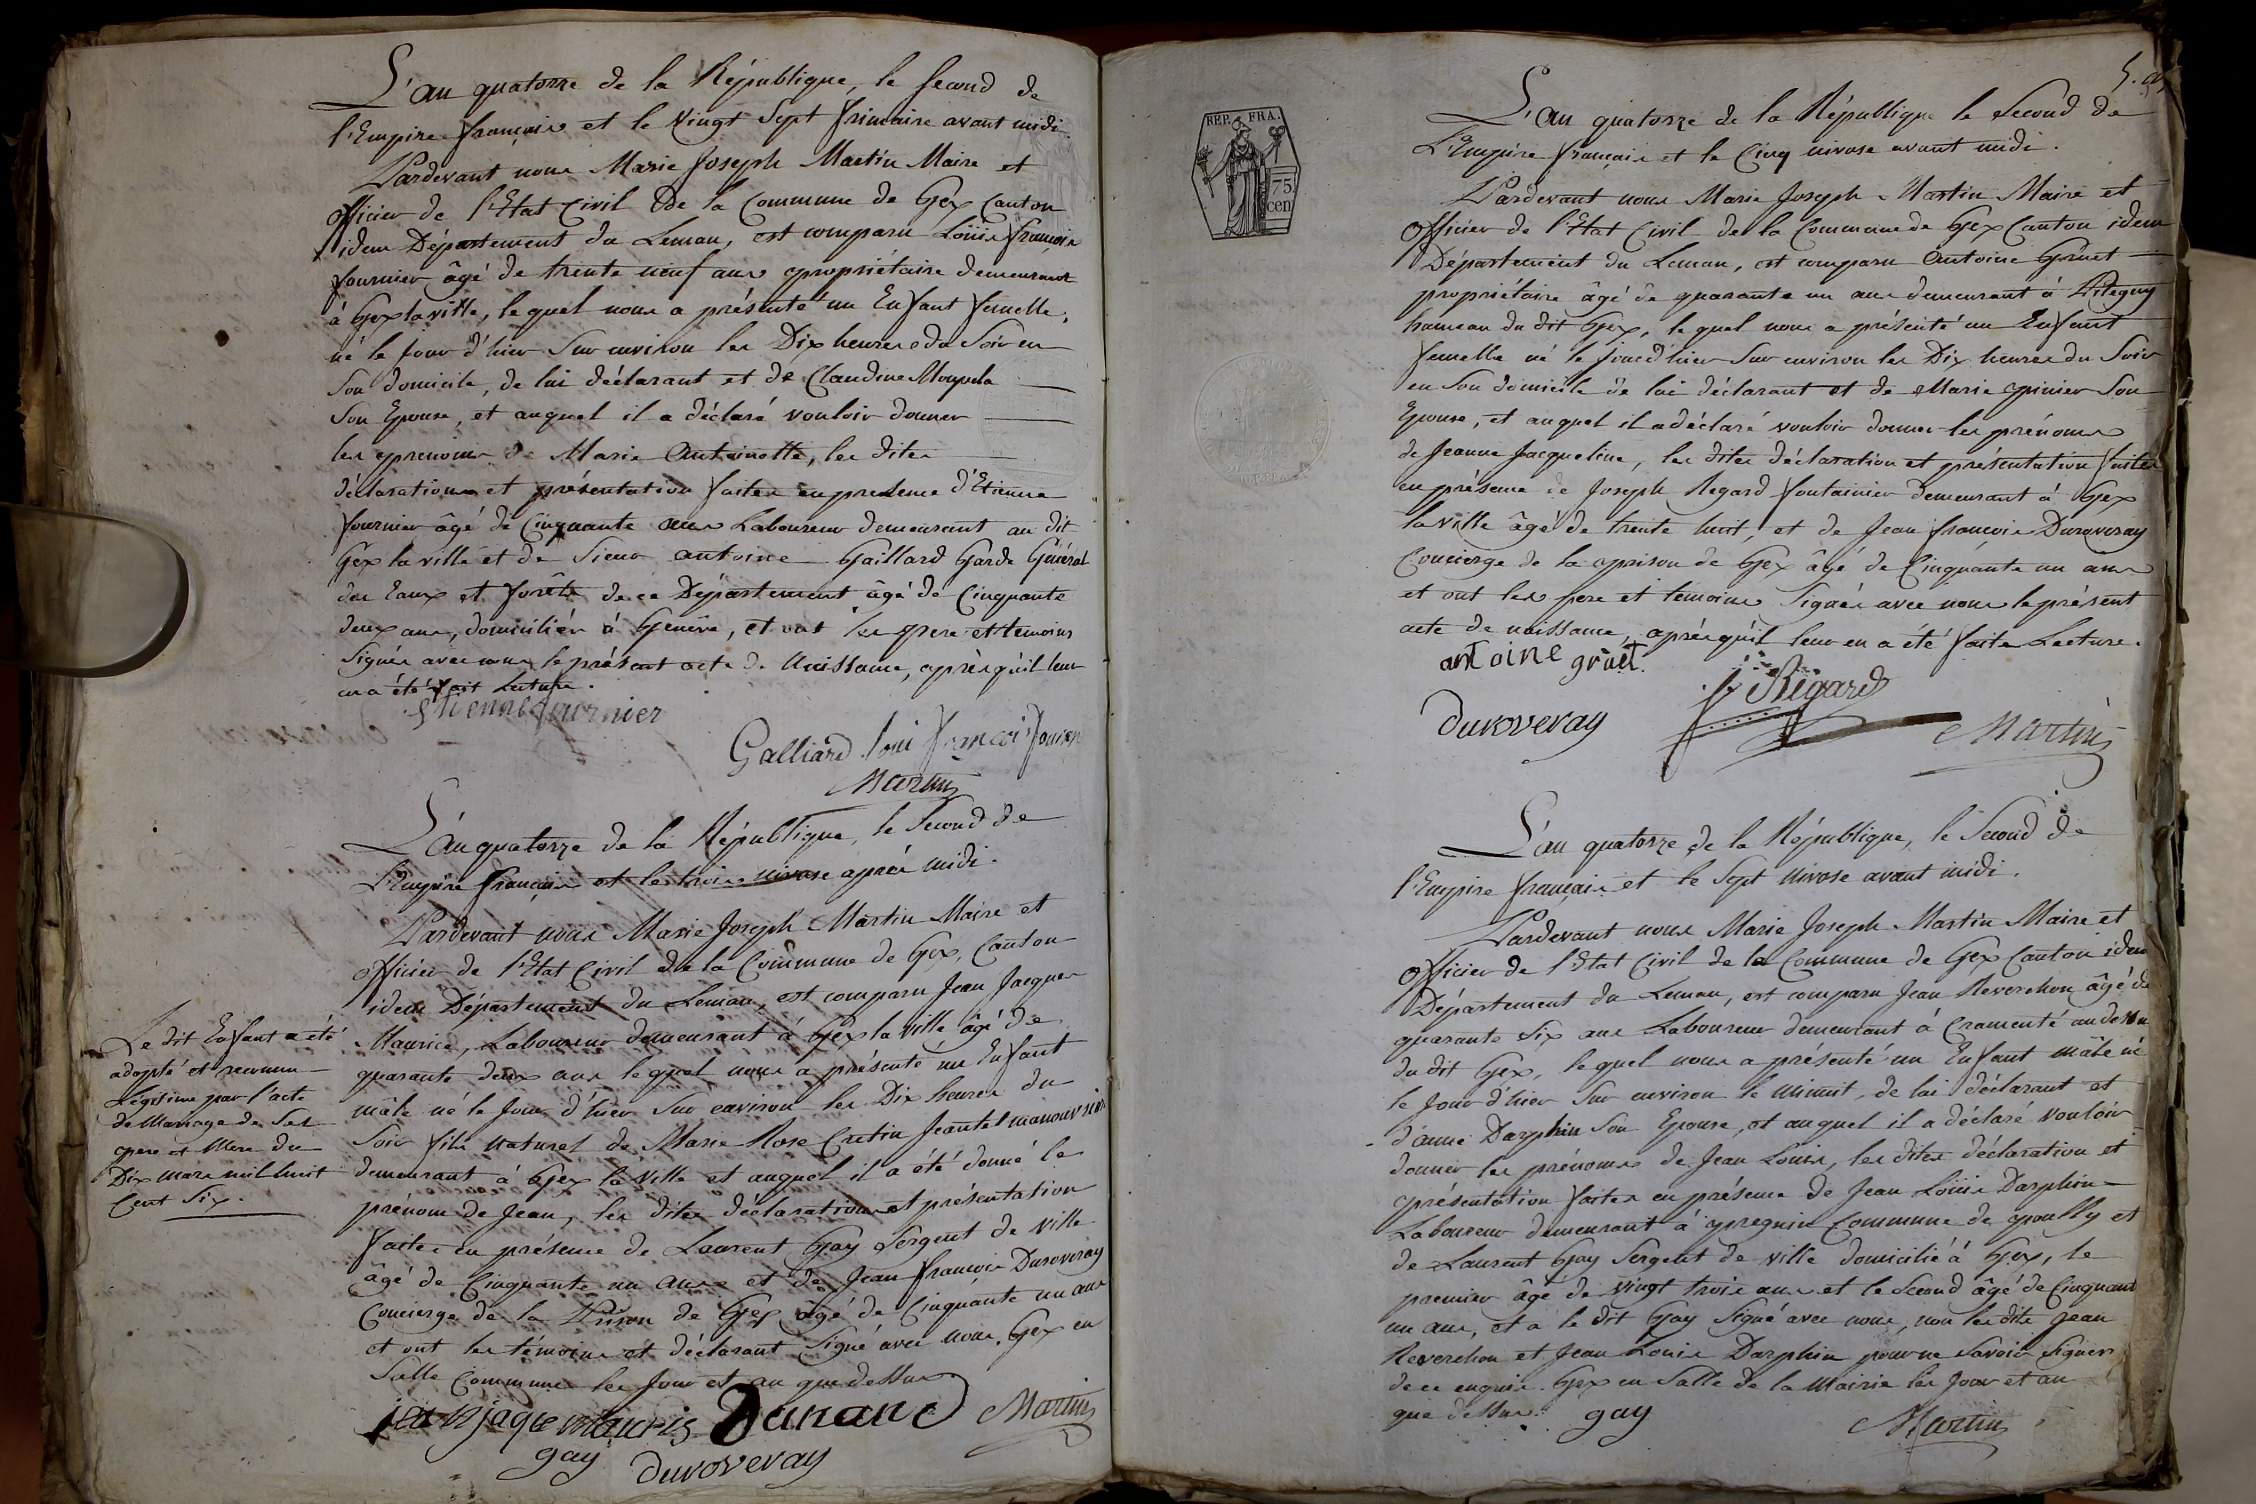 L'an quatorze de la République, le second de
l'Empire français et le vingt sept frimaire avant midi.
Pardevant nous Marie Joseph Martin Maire et
officier de l'Etat Civil de la Commune de Gex Canton
idem Département du Leman, est comparu Loüis françois
fournier âgé de trente neuf ans propriétaire demeurant
à Gex la ville, lequel nous a présenté un Enfant femelle,
né le Jour d'hier Sur environ les Dix heures du Soir en
Son domicile, de lui déclarant et de Claudine
Son Epouse, et auquel il a déclaré vouloir donner
les prenoms de Marie Antoinette, les dites
déclarations et présentation faites en presence d'Etienne
fournier âgé de Cinquante ans Laboureur demeurant au dit
Gex la ville et de Sieur antoine Gaillard Garde Général
des Eaux et forêts de ce Département âgé de Cinquante
deux ans, domiciliés à Genève, et ont les pere et temoins
Signés avec nous le présent acte de Naissance, après qu'il leur
en a été fait lecture.
etienne fournier
Galliard loui françoi fournier
Martin
L'an quatorze de la République, le Second de
l'Empire français et le trois nivose après midi.
Pardevant nous Marie Joseph Martin Maire et
officier de l'Etat Civil de la Commune de Gex, Canton
idem Département du Leman, est comparu Jean Jacques
Maurice, Laboureur demeurant à Gex la ville âgé de
quarante deux ans lequel nous a présenté un Enfant
mâle né le Jour d'hier Sur environ les Dix heures du
Soir fils naturel de Marie Rose Cretin Jeantet
demeurant à Gex la ville et auquel il a été donné le
prénom de Jean, les dites déclaration et présentation
faites en présence de Laurent Gay Sergent de ville
âgé de Cinquante un ans et de Jean françois Duroveray
Concierge de la Prison de Gex âgé de Cinquante un ans
et ont les témoins et déclarant Signé avec nous. Gex en
Salle Commune les Jour et an que dessus
Le dit Enfant a été
adopté et reconnu
Légitime par l'acte
de Mariage de Ses
pere et Mere du
Dix mars mil huit
Cent Six.
jean jaque mauris Dunand Martin
gay duroveray
REP. FRA.
75
cen
L'an quatorze de la République le Second de
L'Empire français et le Cinq nivose avant midi.
Pardevant nous Marie Joseph Martin Maire et
officier de l'Etat Civil de la Commune de Gex Canton idem
Département du Leman, est comparu Antoine Gruet
propriétaire âgé de quarante un ans demeurant à Pitegny
hameau du dit Gex, lequel nous a présenté un Enfant
femelle né le jour d'hier Sur environ les Dix heures du Soir
en Son domicile de lui déclarant et de Marie pinier Son
Epouse, et auquel il a déclaré vouloir donner les prénoms
de Jeanne Jacqueline, les dites déclaration et présentation faites
en présence de Joseph Regard fontainier demeurant à Gex
la ville âgé de trente huit, et de Jean françois Duroveray
Concierge de la prison de Gex âgé de Cinquante un ans
et ont les pere et témoins Signés avec nous le présent
acte de naissance, après qu'il leur en a été faite Lecture.
antoine gruet. j Regard
duroveray Martin
L'an quatorze de la République, le Second de
l'Empire français et le Sept Nivose avant midi.
Pardevant nous Marie Joseph Martin Maire et
officier de l'Etat Civil de la Commune de Gex Canton idem
Département du Leman, est comparu Jean Reverchon âgé de
quarante Six ans Laboureur demeurant à Cramenté au dessus
du dit Gex, lequel nous a présenté un Enfant mâle né
le Jour d'hier Sur environ le Minuit, de lui déclarant et
d'anne Darphin Son Epouse, et auquel il a déclaré Vouloir
donner les prénoms de Jean Louis, les dites déclaration et
présentation faites en présence de Jean Loüis Darphin
Laboureur demeurant à pregnin Commune de pouilly et
de Laurent Gay Sergent de ville domicilié à Gex, le
premier âgé de vingt trois ans et le Second âgé de Cinquante
un ans, et a le dit Gay Signé avec nous, non les dits Jean
Reverchon et Jean Louis Darphin pour ne Savoir Signer
de ce enquis. Gex en Salle de la Mairie les Jour et an
que dessus. gay Martin